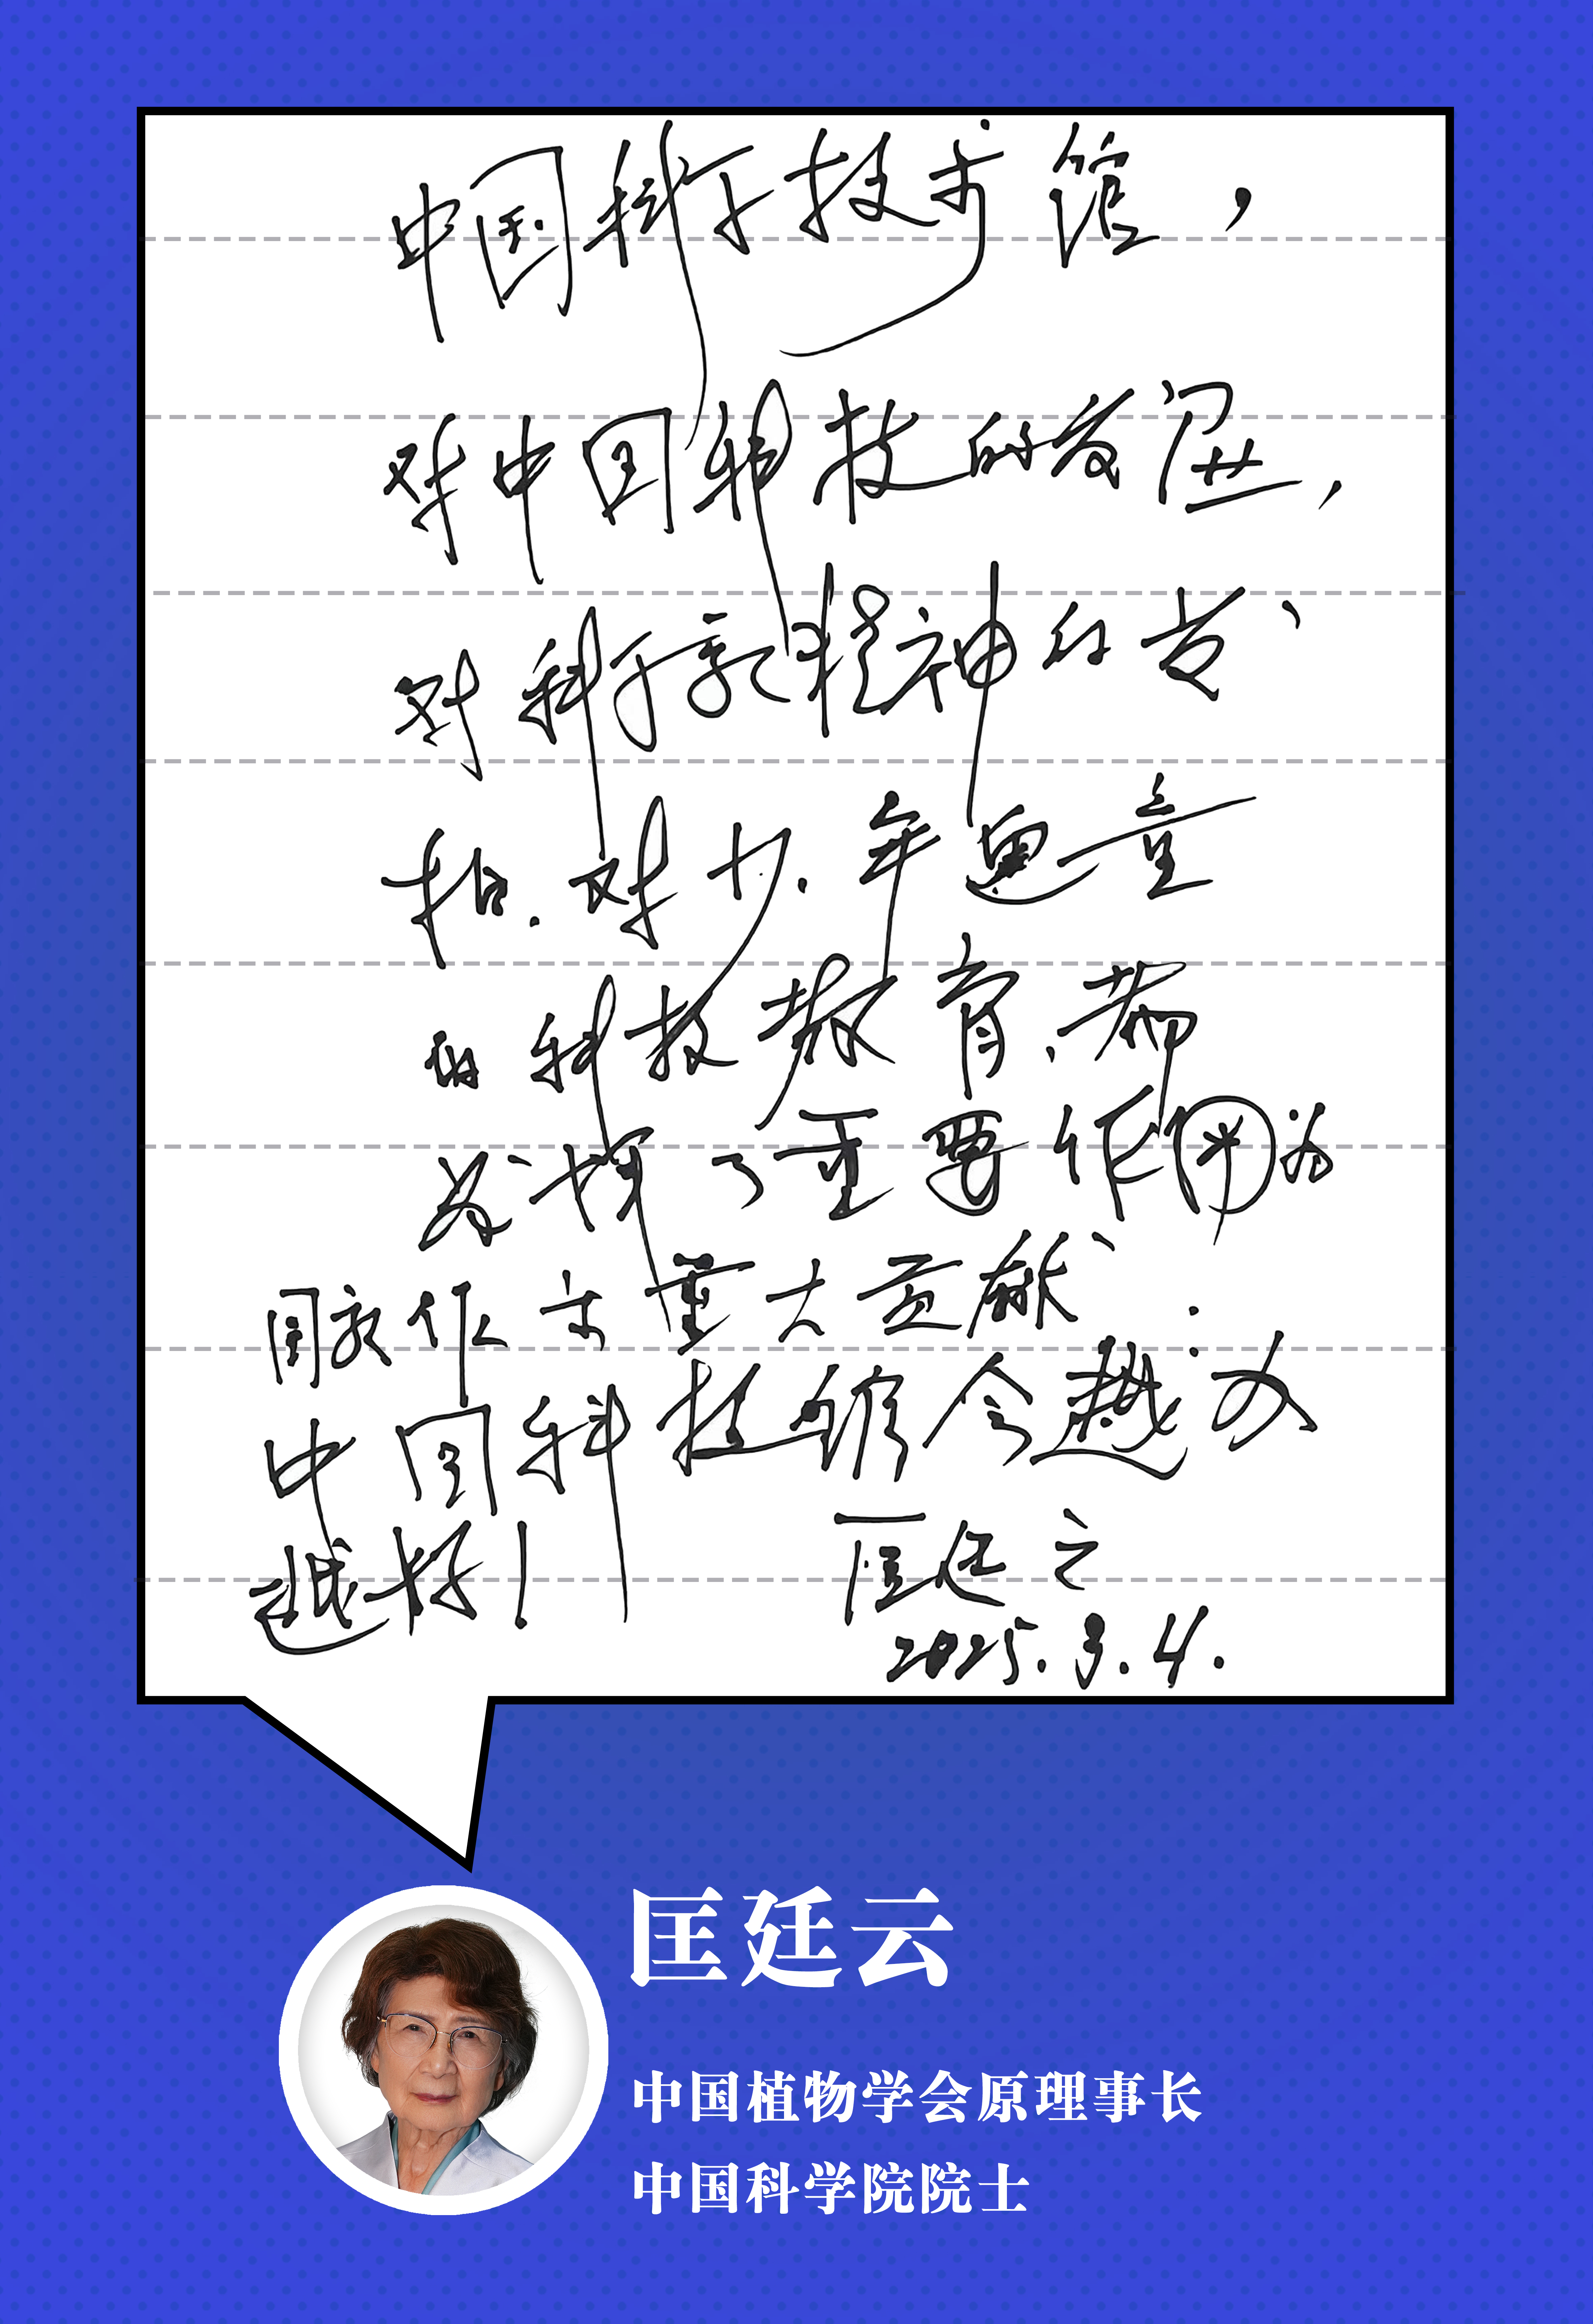 中国科学技术馆，
对中国科技的发展，
对科学家精神的发
扬.对少.年儿童
的科技教育、都
发挥了重要作用为
国家作出重大贡献：
中国科技馆会越办
越好！ 匡廷云
2025.3.4.
匡廷云
中国植物学会原理事长
中国科学院院士